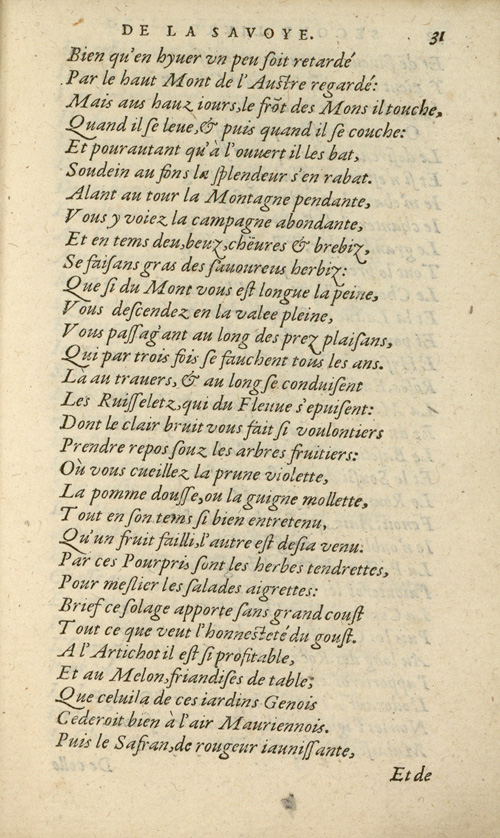 DE LA SAVOYE. 31
Bien qu'en hyuer vn peu ſoit retardé
Par le haut Mont de l'Auſtre regardé:
Mais aus hauz iours, le frõt des Mons il touche,
Quand il ſe leue, & puis quand il ſe couche:
Et pourautant qu'à l'ouuert il les bat,
Soudein au fons la ſplendeur s'en rabat.
Alant au tour la Montagne pendante,
Vous y voiez la campagne abondante,
Et en tems deu, beuz, cheures & brebiz,
Se faiſans gras des ſauoureus herbiz:
Que ſi du Mont vous eſt longue la peine,
Vous deſcendez en la valee pleine,
Vous paſſag'ant au long des prez plaiſans,
Qui par trois fois ſe fauchent tous les ans.
Là au trauers, & au long ſe conduiſent
Les Ruiſſeletz, qui du Fleuue s'epuiſent:
Dont le clair bruit vous fait ſi voulontiers
Prendre repos ſouz les arbres fruitiers:
Où vous cueillez la prune violette,
La pomme douſſe, ou la guigne mollette,
Tout en ſon tems ſi bien entretenu,
Qu'un fruit failli, l'autre eſt deſia venu.
Par ces Pourpris ſont les herbes tendrettes,
Pour meſlier les ſalades aigrettes:
Brief ce ſolage apporte ſans grand couſt
Tout ce que veut l'honneſteté du gouſt.
A l'Artichot il eſt ſi profitable,
Et au Melon, friandiſes de table;
Que celuila de ces iardins Genois
Cederoit bien à l'air Mauriennois.
Puis le Safran, de rougeur iauniſſante,
Et de